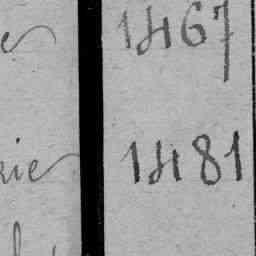 e 1467
rie 1481